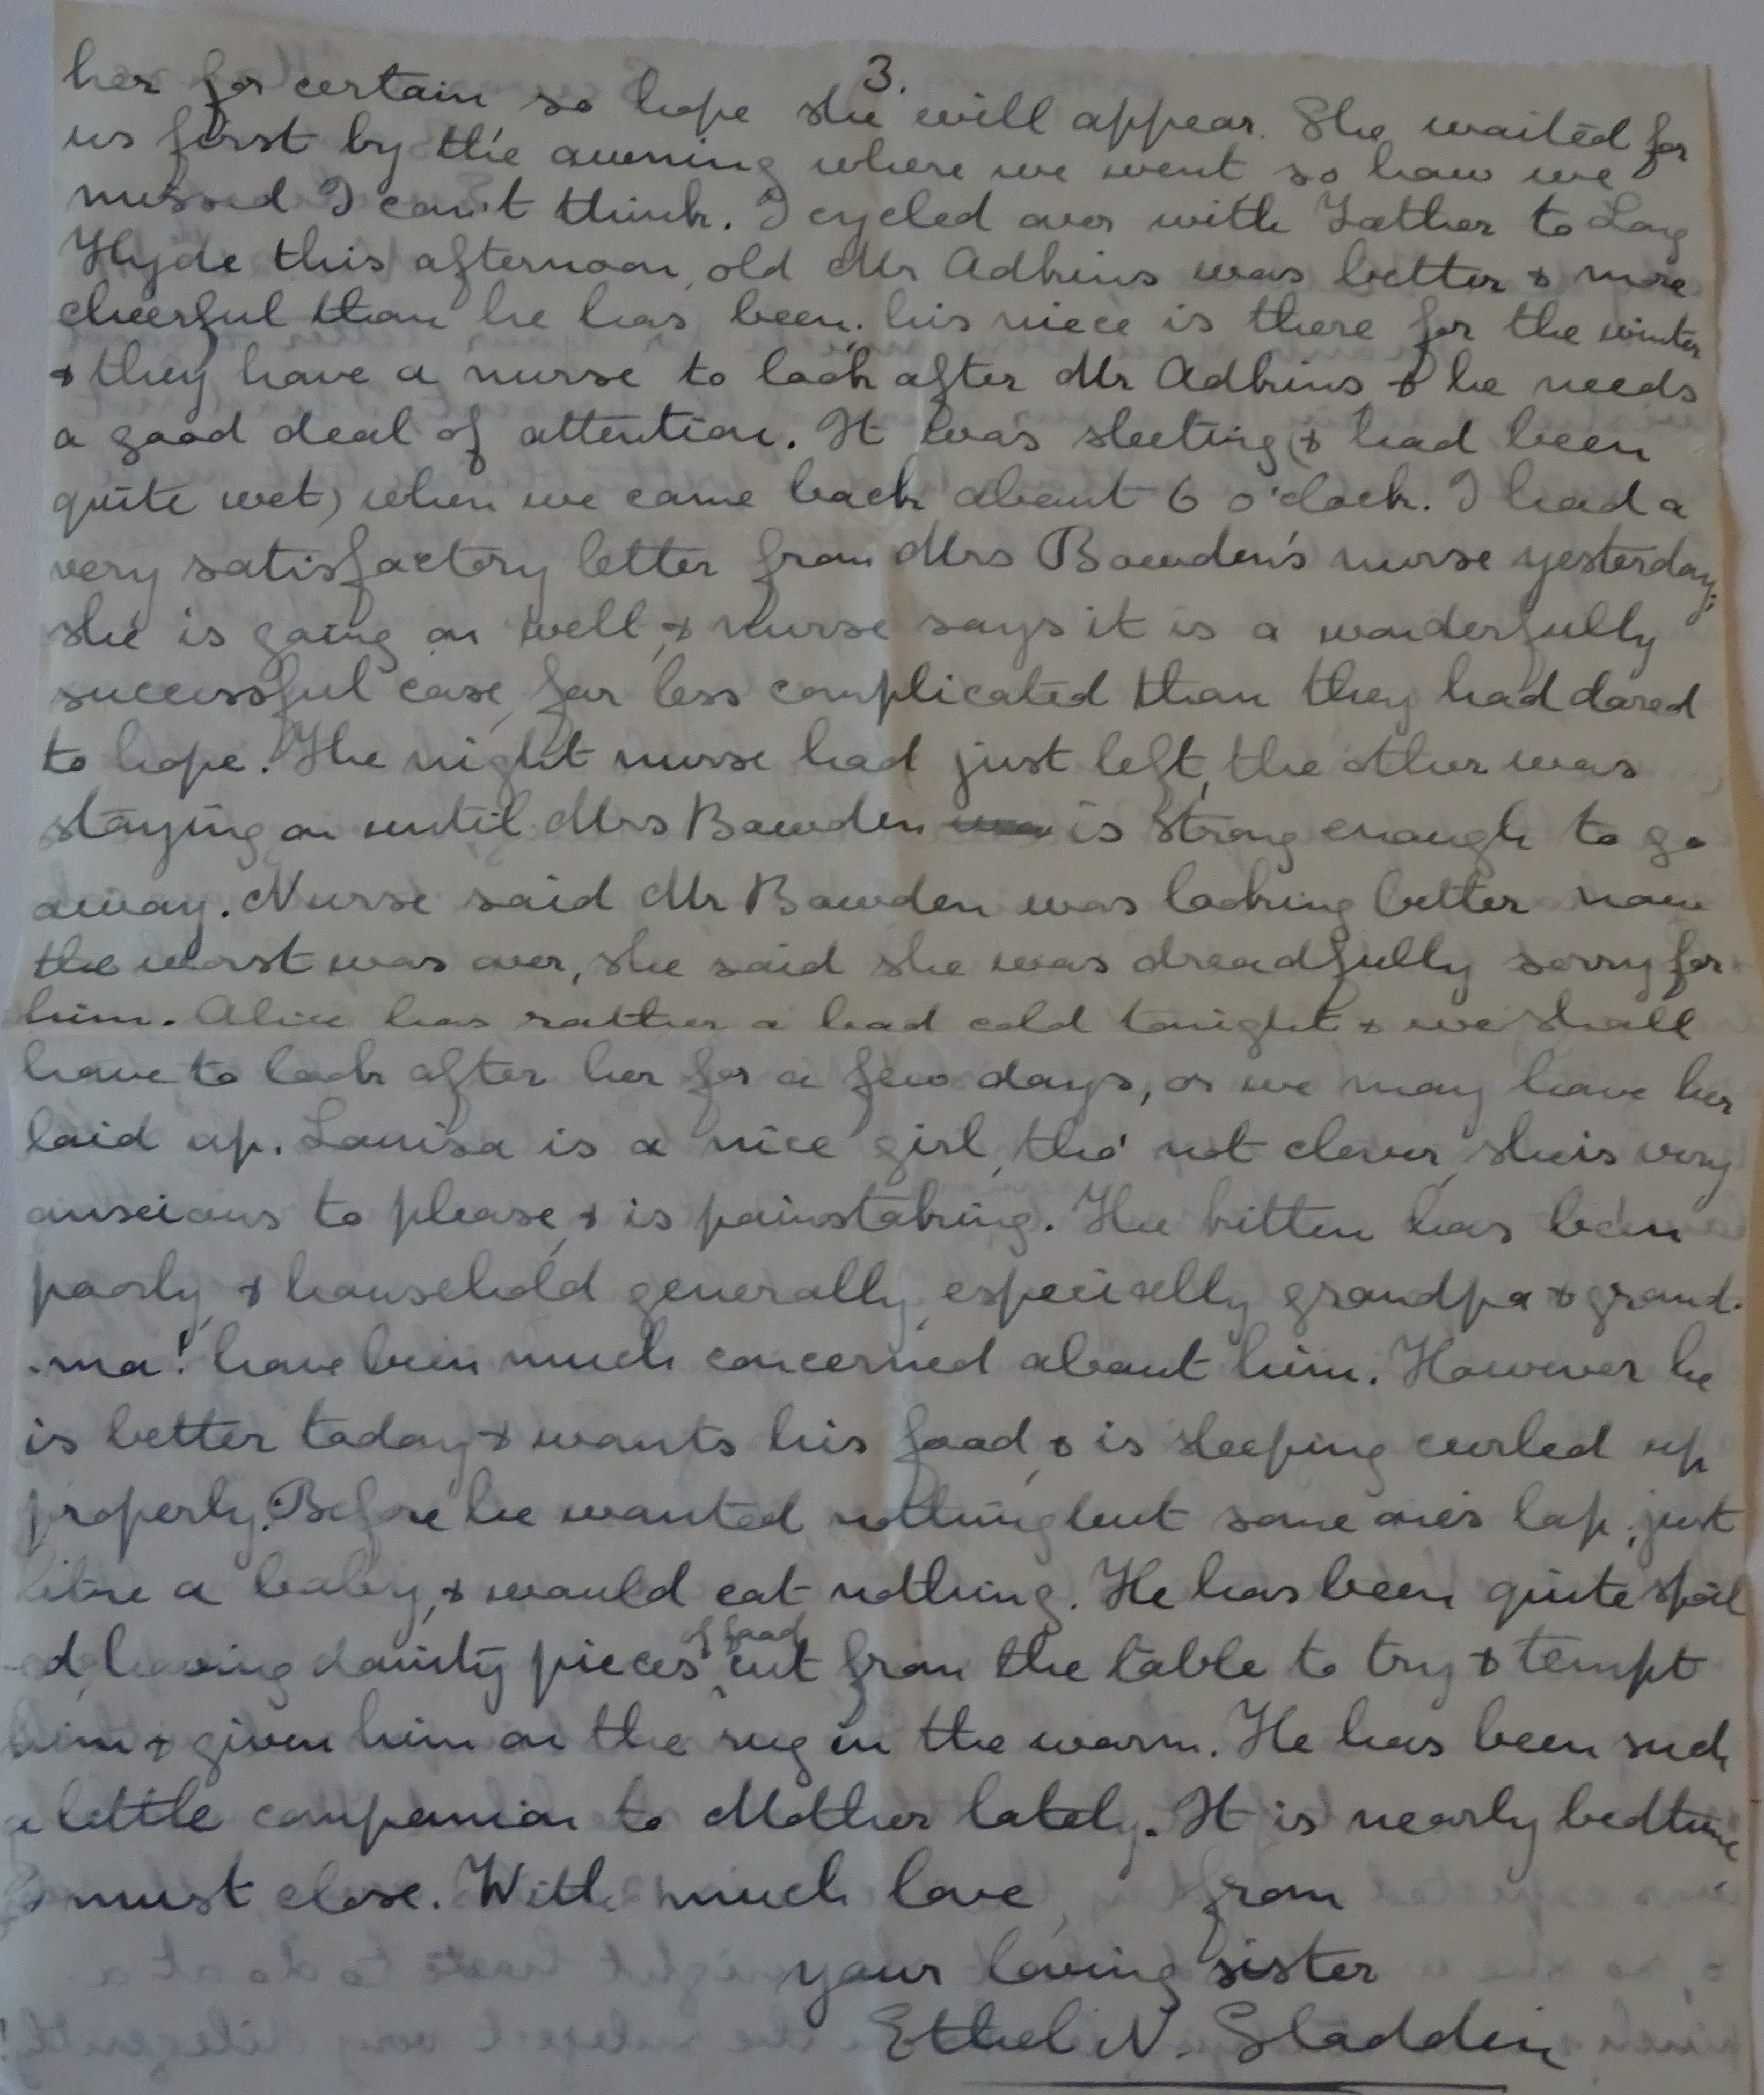 3.
her for certain so hope she will appear. She waited for
us first by the awning where we went so how we
missed I can't think. I cycled over with Father to Long
Hyde this afternoon, old Mr Adkins was better & more
cheerful than he has been; his niece is there for the winter
& they have a nurse to look after Mr Adkins & he needs
a good deal of attention. It was sleeting (& had been
quite wet) when we came back about 6 o'clock. I had a
very satisfactory letter from Mrs Bawden's nurse yesterday;
she is going on well, & nurse says it is a wonderfully
successful case, far less complicated than they had dared
to hope. The night nurse had just left, the other was
staying on until Mrs Bawden is strong enough to go
away. Nurse said Mr Bawden was looking better now
the worst was over, she said she was dreadfully sorry for
him. Alice has rather a bad cold tonight & we shall
have to look after her for a few days, or we may have her
laid up. Louisa is a nice girl, tho' not clever, she is very
anxious to please, & is painstaking. The kitten has been
poorly, & household generally, especially grandpa & grand-
-ma! have been much concerned about him. However he
is better today & wants his food, & is sleeping curled up
properly. Before he wanted nothing but some one's lap, just
like a baby, & would eat nothing. He has been quite spoil
-ed, having dainty pieces of food cut from the table to try & tempt
him & given him on the rug in the warm. He has been such
a little companion to Mother lately. It is nearly bedtime
& must close. With much love from
your loving sister
Ethel N. Sladden